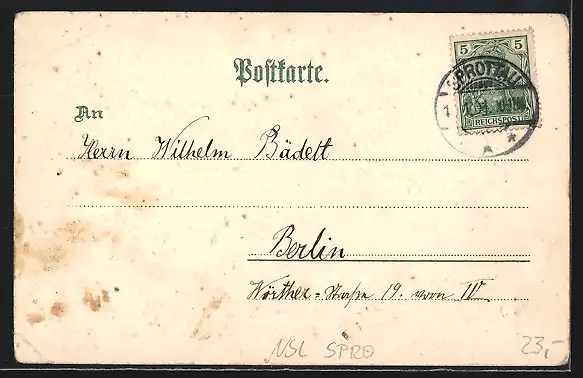 Postkarte.
5 5
SPROTTAU
REICHSPOST
An
Herrn Wilhelm Bädelt
Berlin
Wörther-Straße 19. vorn IV
NSL SPRO
23,-